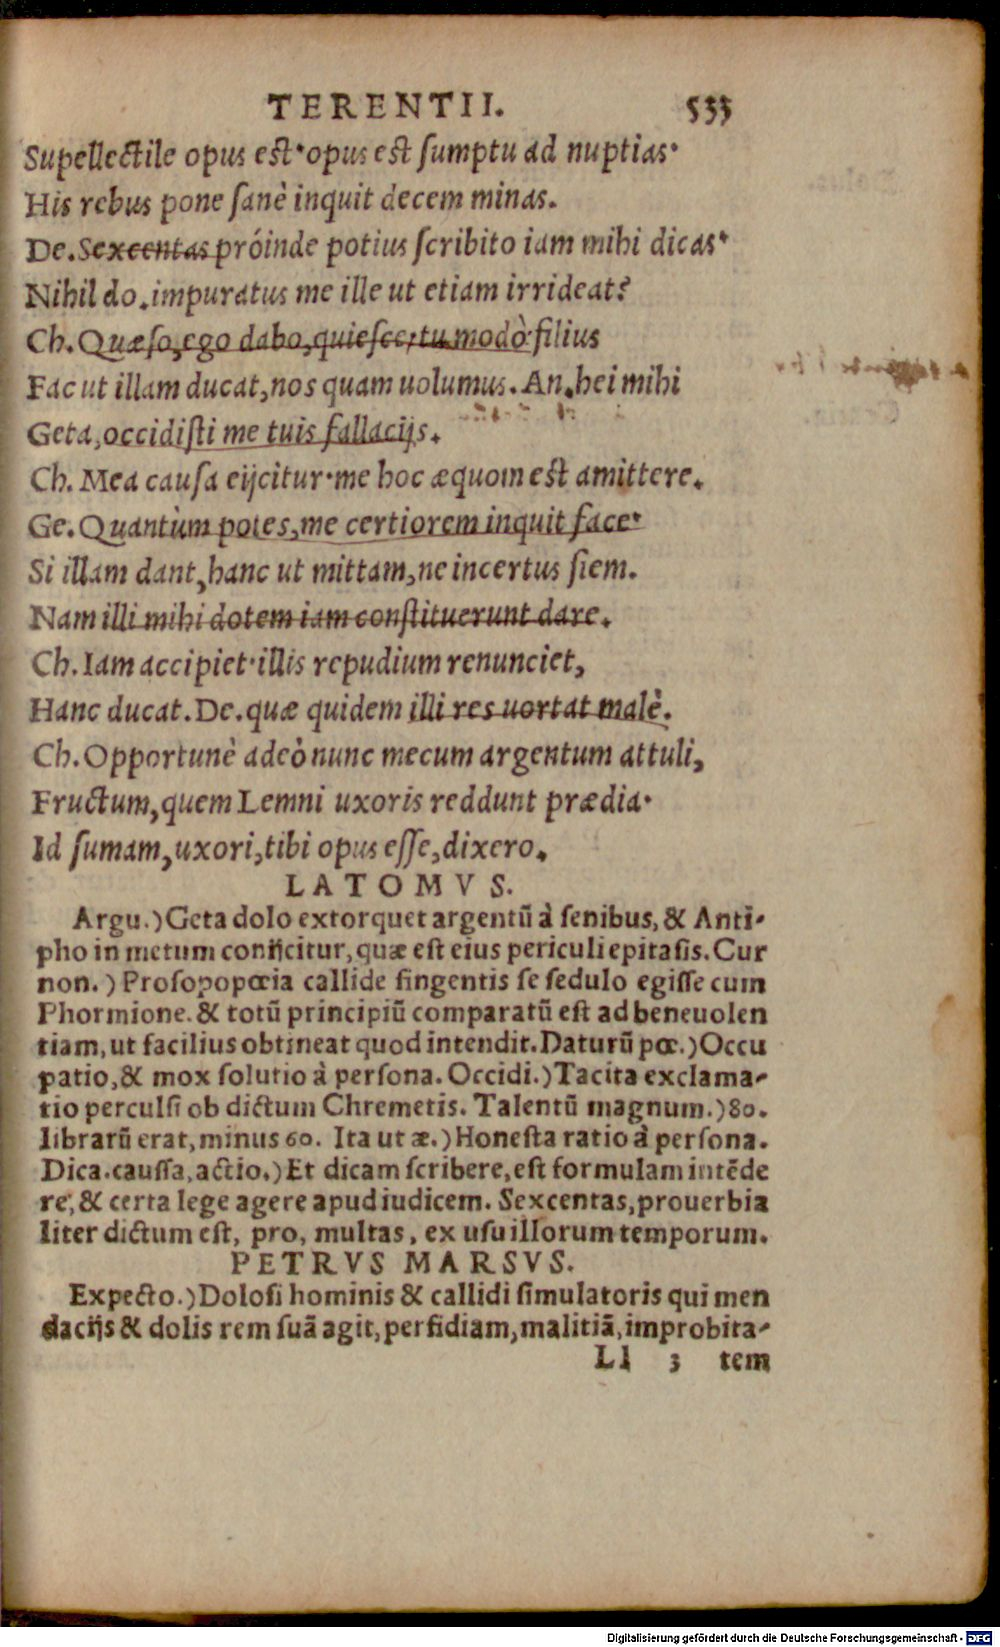 TERENTII. 533
Supellectile opus est·opus est ſumptu ad nuptias·
His rebus pone ſanè inquit decem minas.
De. Sexcentas próinde potius ſcribito iam mihi dicas·
Nihil do. impuratus me ille ut etiam irrideat?
Ch. Quæſo, ego dabo, quieſce, tu modò·filius
Fac ut illam ducat, nos quam uolumus. An. hei mihi
Geta, occidiſti me tuis fallacijs.
Ch. Mea cauſa eijcitur·me hoc æquom est amittere.
Ge. Quantùm potes, me certiorem inquit face·
Si illam dant, hanc ut mittam, ne incertus ſiem.
Nam illi mihi dotem iam conſtituerunt dare.
Ch. Iam accipiet·illis repudium renunciet,
Hanc ducat. De. quæ quidem illi res uortat malè.
Ch. Opportunè adeò nunc mecum argentum attuli,
Fructum, quem Lemni uxoris reddunt prædia·
Id ſumam, uxori, tibi opus eſſe, dixero.
LATOMVS.
Argu.) Geta dolo extorquet argentū à ſenibus, & Anti-
pho in metum conijcitur, quæ eſt eius periculi epitaſis. Cur
non.) Proſopopœia callide fingentis ſe ſedulo egiſſe cum
Phormione. & totū principiū comparatū eſt ad beneuolen
tiam, ut facilius obtineat quod intendit. Daturū pœ.) Occu
patio, & mox ſolutio à perſona. Occidi.) Tacita exclama-
tio perculſi ob dictum Chremetis. Talentū magnum.) 80.
librarū erat, minus 60. Ita ut æ.) Honeſta ratio à perſona.
Dica. cauſſa, actio.) Et dicam ſcribere, eſt formulam intēde
re, & certa lege agere apud iudicem. Sexcentas, prouerbia
liter dictum eſt, pro, multas, ex uſu illorum temporum.
PETRVS MARSVS.
Expecto.) Doloſi hominis & callidi ſimulatoris qui men
dacijs & dolis rem ſuā agit, perfidiam, malitiā, improbita-
Ll 3 tem
Digitalisierung gefördert durch die Deutsche Forschungsgemeinschaft - DFG